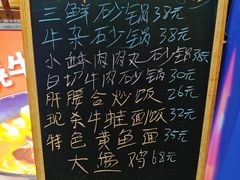 三鲜砂锅38元
牛杂砂锅38元
小鲜肉肉丸砂锅38元
白切牛肉砂锅30元
肝腰合炒饭26元
现杀牛蛙面饭32元
特色黄鱼面35元
大盘鸡68元